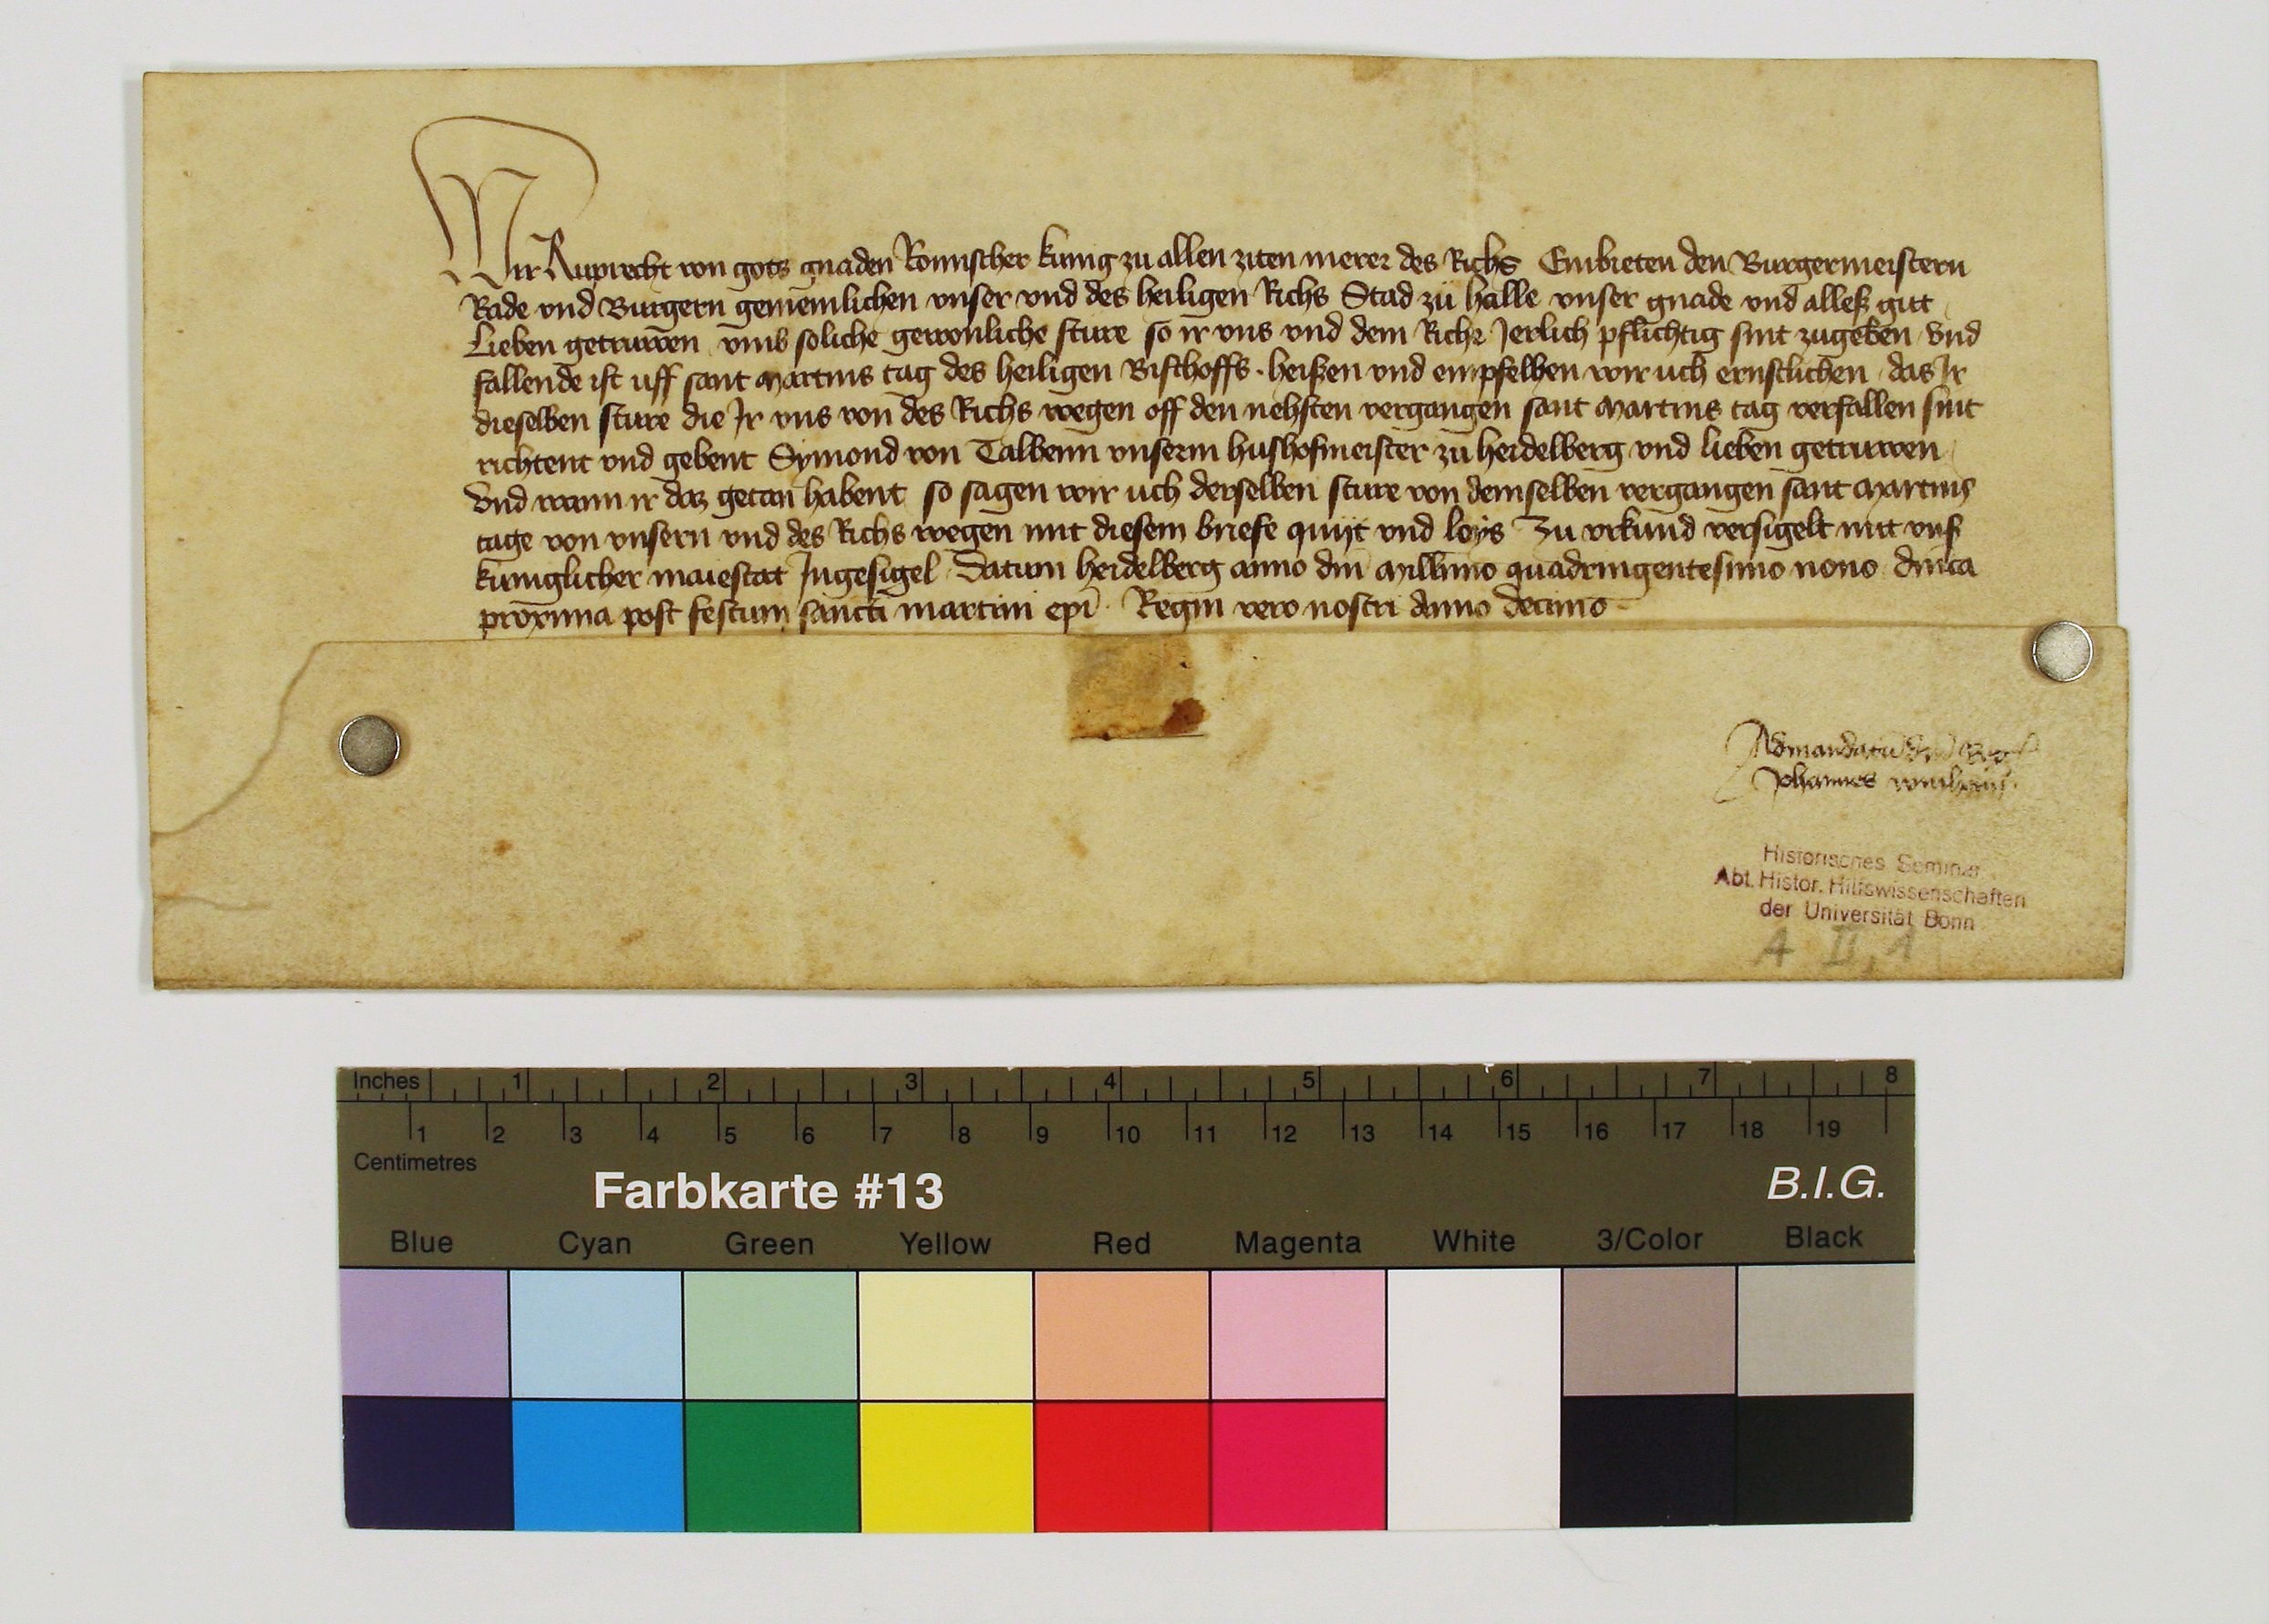 Wir Ruprecht von gots gnaden Romischer kunig zu allen ziten merer des Richs Embieten den Burgermeistern
Rade vnd Burgern gemeinlichen vnser vnd des heiligen Richs Stad zü halle vnser gnade vnd alleß gut
Lieben getruwen vmb soliche gewonliche sture so ir vns vnd dem Riche Jerlich pflichtig sint zugeben vnd
fallende ist uff sant Martins tag des heiligen Bischoffs heißen vnd empfelhen wir uch ernstlichen das Ir
dieselben sture die Ir vns von des Richs wegen off den nehsten vergangen sant Martins tag verfallen sint
richtent vnd gebent Symond von Talheim vnserm hushofmeister zu heidelberg vnd lieben getruwen
Vnd wann ir daz getan habent so sagen wir uch derselben sture von demselben vergangen sant Martins
tage von vnsern vnd des Richs wegen mit diesem briefe quijt vnd loys Zu vrkund versigelt mit vnß
kuniglicher maiestat Ingesigel Datum heidelberg anno dni Millimo quadringentesimo nono dnica
proxima post festum sancti martini epi Regni vero nostri Anno decimo
Ad mandatu dni Regis
Johannes winheim
Historisches Seminar
Abt. Histor. Hilfswissenschaften
der Universität Bonn
A II, 1
Inches 1 2 3 4 5 6 7 8
1 2 3 4 5 6 7 8 9 10 11 12 13 14 15 16 17 18 19
Centimetres
Farbkarte #13 B.I.G.
Blue Cyan Green Yellow Red Magenta White 3/Color Black